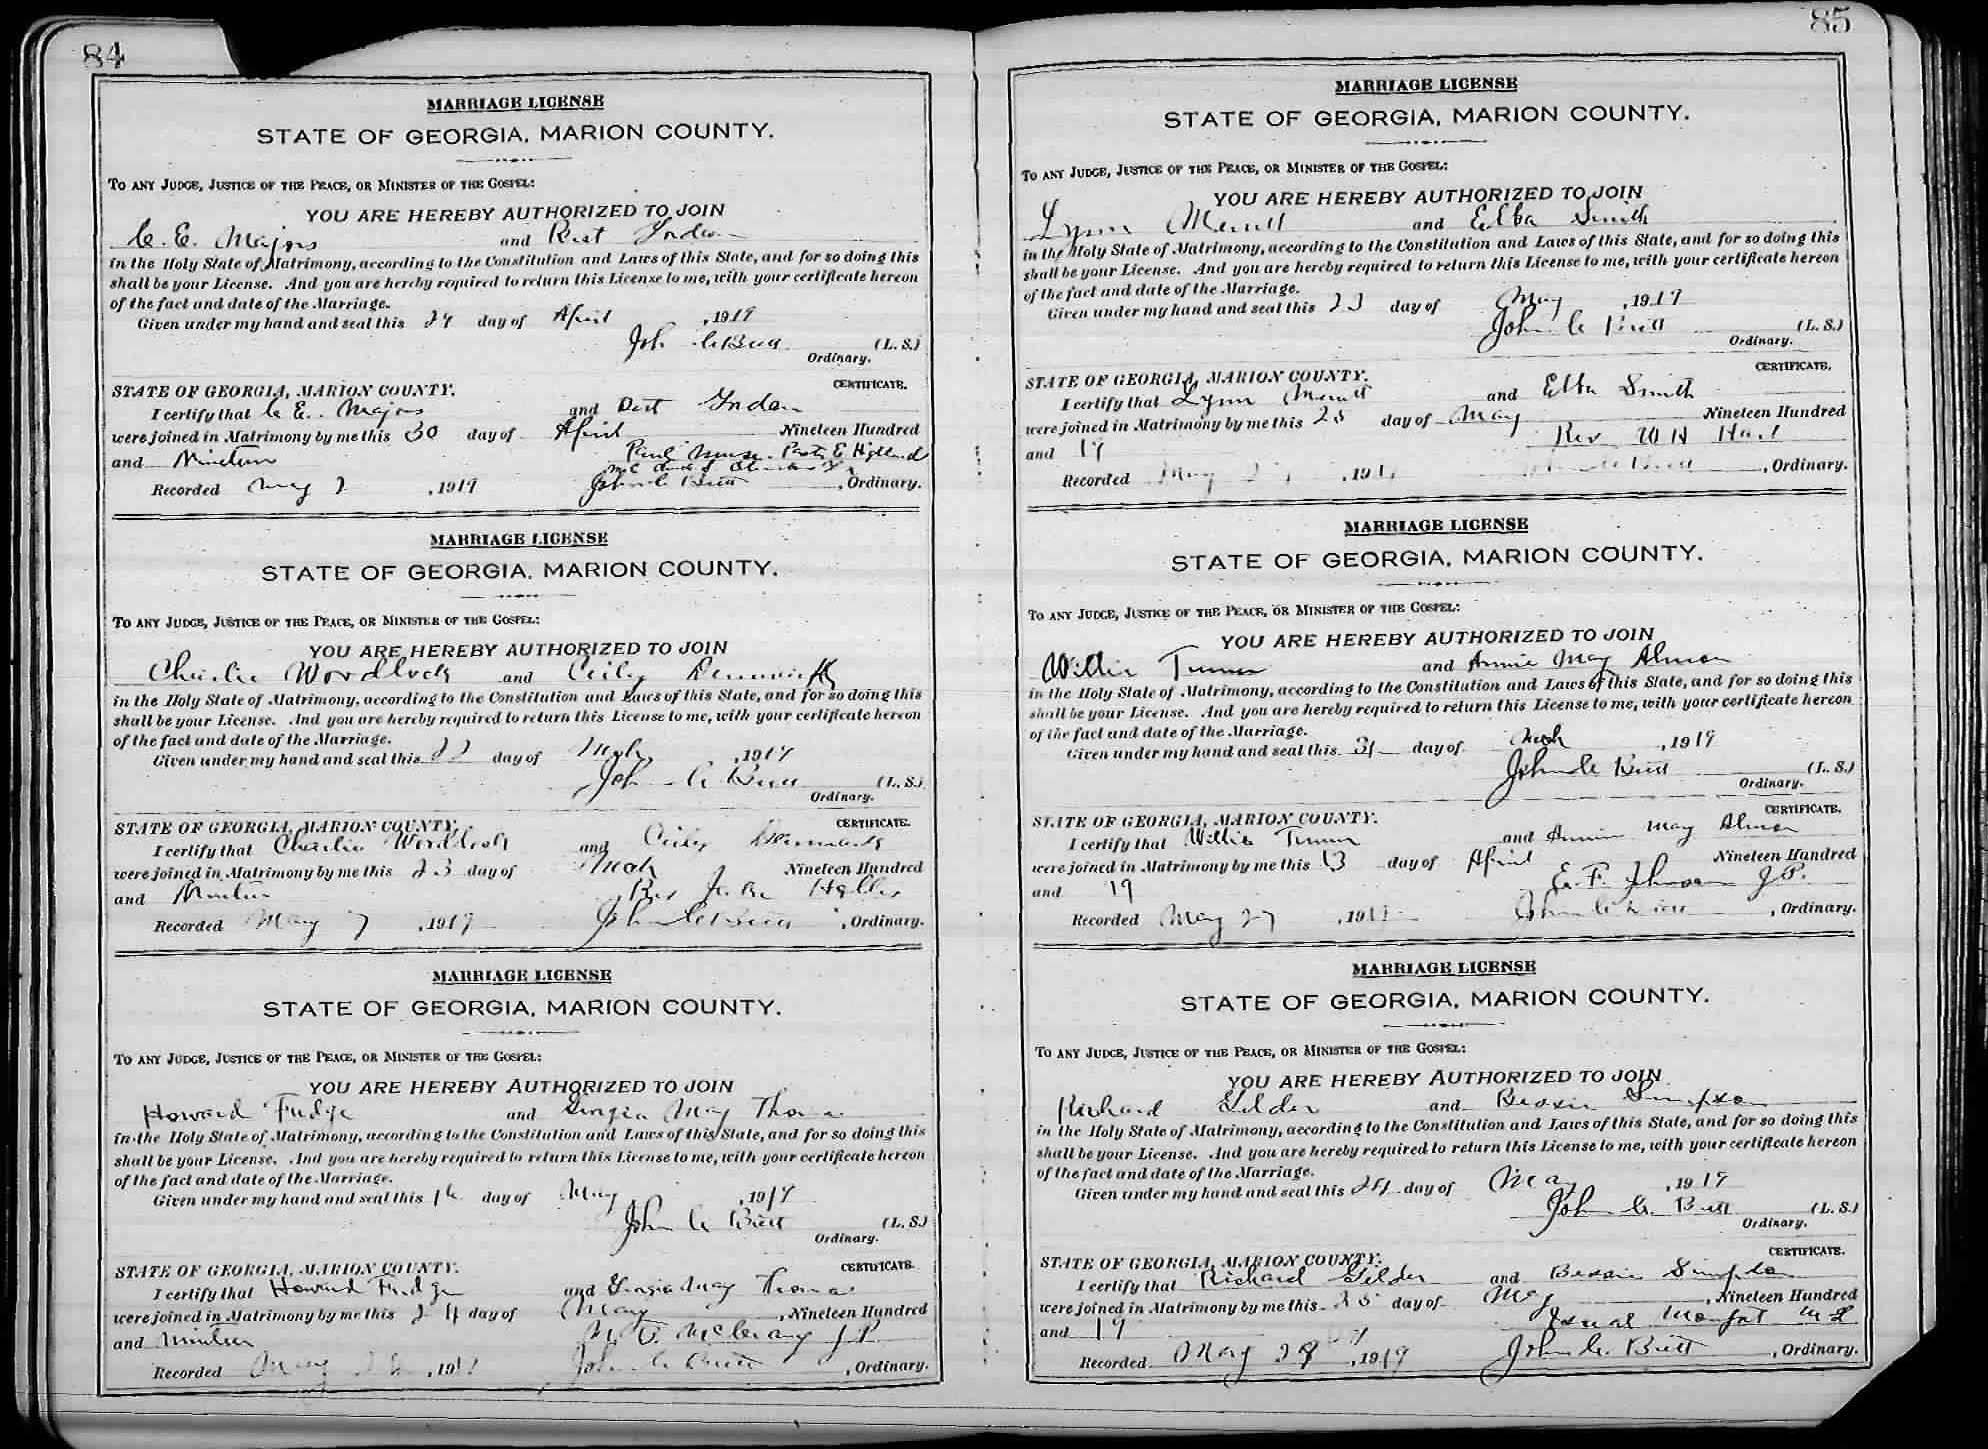 84
MARRIAGE LICENSE
STATE OF GEORGIA, MARION COUNTY.
TO ANY JUDGE, JUSTICE OF THE PEACE, OR MINISTER OF THE GOSPEL:
YOU ARE HEREBY AUTHORIZED TO JOIN
C. E. Majors and
in the Holy State of Matrimony, according to the Constitution and Laws of this State, and for so doing this
shall be your License. And you are hereby required to return this License to me, with your certificate hereon
of the fact and date of the Marriage.
Given under my hand and seal this 29 day of April, 1919
John C Butt (L. S.)
Ordinary.
CERTIFICATE.
STATE OF GEORGIA, MARION COUNTY.
I certify that C. E. Majors and
were joined in Matrimony by me this 30 day of April Nineteen Hundred
and Nineteen
Recorded May, 1919 John C Butt, Ordinary.
MARRIAGE LICENSE
STATE OF GEORGIA, MARION COUNTY.
TO ANY JUDGE, JUSTICE OF THE PEACE, OR MINISTER OF THE GOSPEL:
YOU ARE HEREBY AUTHORIZED TO JOIN
Charlie Wordlock and
in the Holy State of Matrimony, according to the Constitution and Laws of this State, and for so doing this
shall be your License. And you are hereby required to return this License to me, with your certificate hereon
of the fact and date of the Marriage.
Given under my hand and seal this 22 day of Mch, 1919
John C Butt (L. S.)
Ordinary.
CERTIFICATE.
STATE OF GEORGIA, MARION COUNTY.
I certify that Charlie Wordlock and
were joined in Matrimony by me this 23 day of Mch Nineteen Hundred
and Nineteen
Recorded May 7, 1919 John C Butt, Ordinary.
MARRIAGE LICENSE
STATE OF GEORGIA, MARION COUNTY.
TO ANY JUDGE, JUSTICE OF THE PEACE, OR MINISTER OF THE GOSPEL:
YOU ARE HEREBY AUTHORIZED TO JOIN
Howard Fudge and Georgia May Thomas
in the Holy State of Matrimony, according to the Constitution and Laws of this State, and for so doing this
shall be your License. And you are hereby required to return this License to me, with your certificate hereon
of the fact and date of the Marriage.
Given under my hand and seal this day of May, 1919
John C Butt (L. S.)
Ordinary.
CERTIFICATE.
STATE OF GEORGIA, MARION COUNTY.
I certify that Howard Fudge and Georgia May Thomas
were joined in Matrimony by me this 24 day of May, Nineteen Hundred
and Nineteen J P
Recorded May, 1919 John C Butt, Ordinary.
85
MARRIAGE LICENSE
STATE OF GEORGIA, MARION COUNTY.
TO ANY JUDGE, JUSTICE OF THE PEACE, OR MINISTER OF THE GOSPEL:
YOU ARE HEREBY AUTHORIZED TO JOIN
Lynn Merritt and Elba Smith
in the Holy State of Matrimony, according to the Constitution and Laws of this State, and for so doing this
shall be your License. And you are hereby required to return this License to me, with your certificate hereon
of the fact and date of the Marriage.
Given under my hand and seal this 23 day of May, 1919
John C Butt (L. S.)
Ordinary.
CERTIFICATE.
STATE OF GEORGIA, MARION COUNTY.
I certify that Lynn Merritt and Elba Smith
were joined in Matrimony by me this 25 day of May Nineteen Hundred
and 19 Rev W H
Recorded May, 191 John C Butt, Ordinary.
MARRIAGE LICENSE
STATE OF GEORGIA, MARION COUNTY.
TO ANY JUDGE, JUSTICE OF THE PEACE, OR MINISTER OF THE GOSPEL:
YOU ARE HEREBY AUTHORIZED TO JOIN
Willie Turner and Annie May Almon
in the Holy State of Matrimony, according to the Constitution and Laws of this State, and for so doing this
shall be your License. And you are hereby required to return this License to me, with your certificate hereon
of the fact and date of the Marriage.
Given under my hand and seal this 31 day of Mch, 1919
John C Butt (L. S.)
Ordinary.
CERTIFICATE.
STATE OF GEORGIA, MARION COUNTY.
I certify that Willie Turner and Annie May Almon
were joined in Matrimony by me this 13 day of April Nineteen Hundred
and 19 E. F. Johnson J. P.
Recorded May 27, 1919 John C Butt, Ordinary.
MARRIAGE LICENSE
STATE OF GEORGIA, MARION COUNTY.
TO ANY JUDGE, JUSTICE OF THE PEACE, OR MINISTER OF THE GOSPEL:
YOU ARE HEREBY AUTHORIZED TO JOIN
Richard Gelder and Bessie Simpson
in the Holy State of Matrimony, according to the Constitution and Laws of this State, and for so doing this
shall be your License. And you are hereby required to return this License to me, with your certificate hereon
of the fact and date of the Marriage.
Given under my hand and seal this 24 day of May, 1919
John C. Butt (L. S.)
Ordinary.
CERTIFICATE.
STATE OF GEORGIA, MARION COUNTY.
I certify that Richard Gelder and Bessie Simpson
were joined in Matrimony by me this 25 day of May, Nineteen Hundred
and 19
Recorded May 28, 1919 John C. Butt, Ordinary.